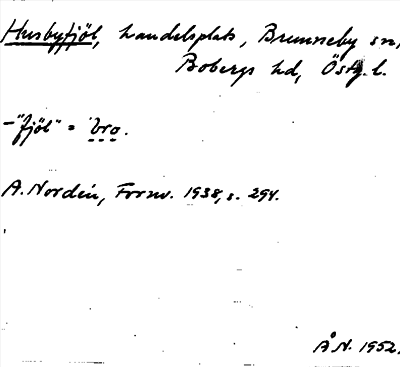 Husbyfjöl, handelsplats, Brunneby sn,
Bobergs hd, Östg. l.
-"fjöl" = bro.
A. Nordén, Fornv. 1938, s. 294.
Å N. 1952.